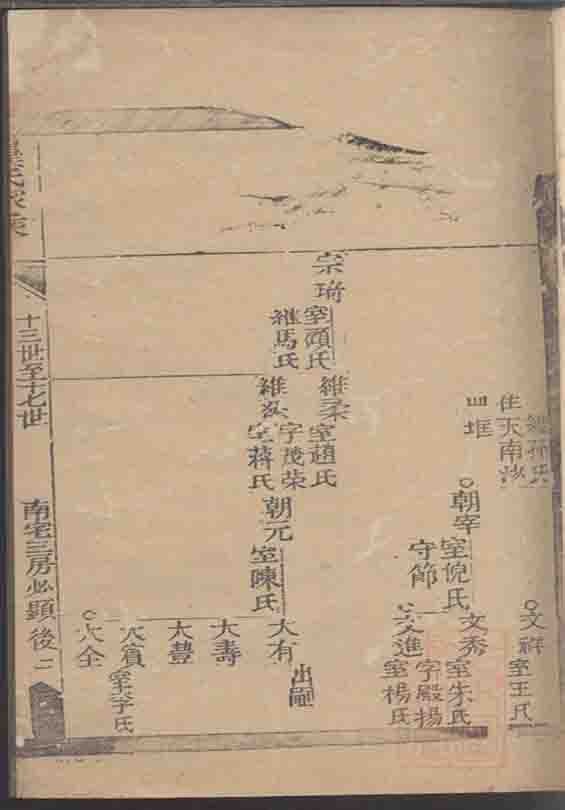 室王氏
住天南沙
四堆
朝宰
室倪氏
守節
文秀
室朱氏
文進
字殿揚
室楊氏
宗琦
室顧氏
繼馬氏
維柔
室趙氏
字茂荣
室蒋氏
朝元
室陳氏
大有
出嗣
大壽
大豊
大賓
室李氏
大全
十三世至十七世
南宅三房必顯後